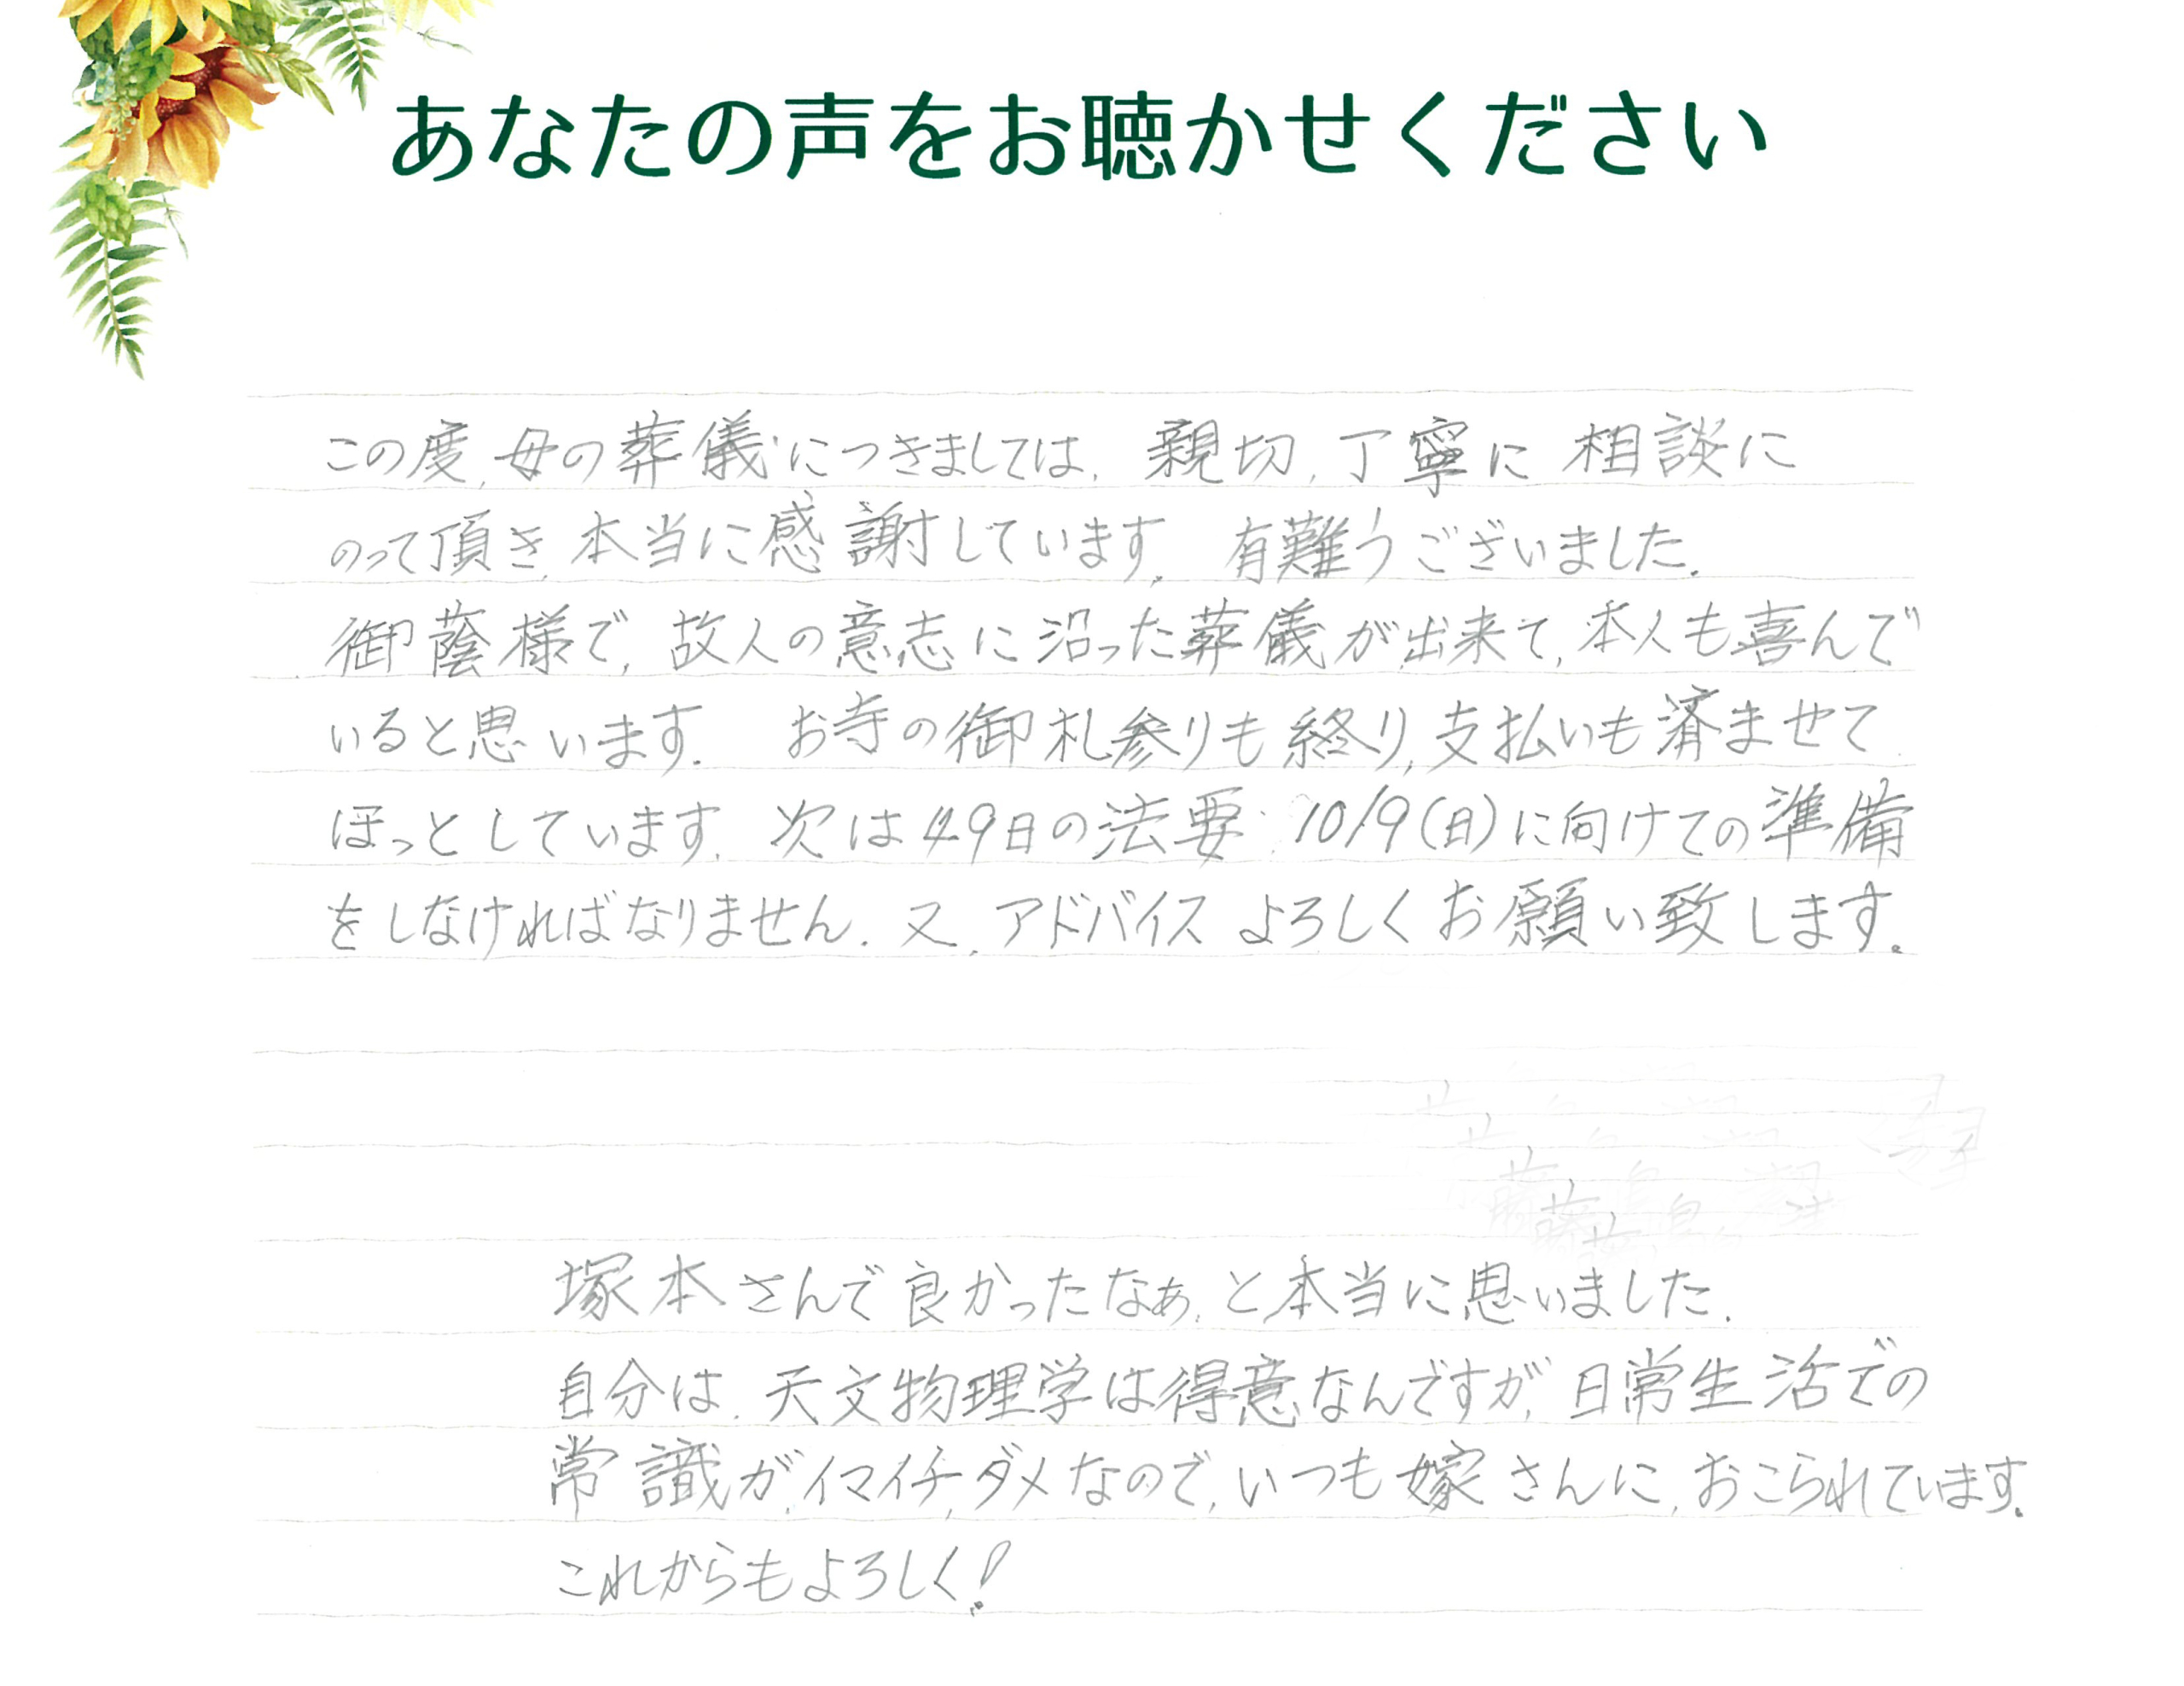 あなたの声をお聴かせください
この度、母の葬儀につきましては、親切、丁寧に相談に
のって頂き、本当に感謝しています。有難うございました。
御蔭様で、故人の意志に沿った葬儀が出来て、本人も喜んで
いると思います。 お寺の御札参りも終り、支払いも済ませて
ほっとしています。次は49日の法要 10/9(日)に向けての準備
をしなければなりません。又、アドバイスよろしくお願い致します。
塚本さんで良かったなぁ、と本当に思いました。
自分は、天文物理学は得意なんですが、日常生活での
常識が、イマイチ、ダメなので、いつも嫁さんに、おこられています。
これからもよろしく!